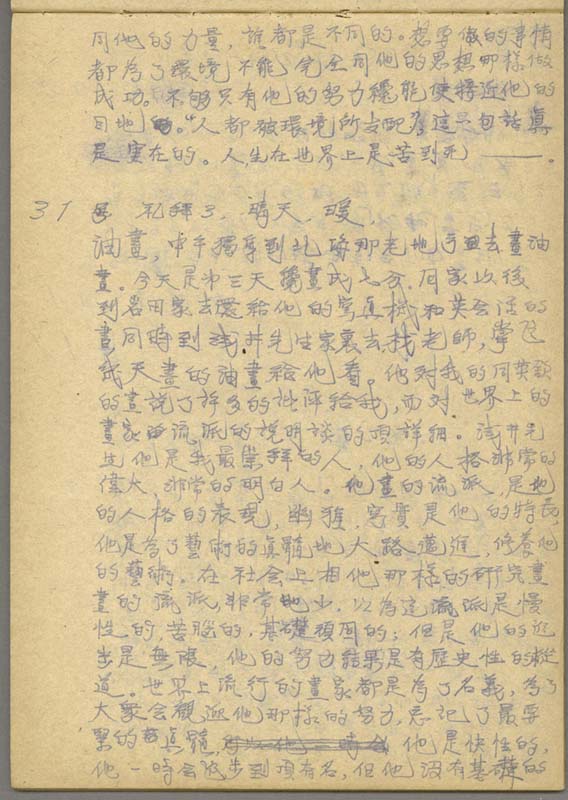 同他的力量，誰都是不同的。想要做的事情
都為了環境不能完全同他的思想那樣做
成功。不够只有他的努力纔能使接近他的
目地的。“人都被環境所支配”，這一句話真
是實在的。人生在世界上是苦到死——。
31 号 礼拜3，晴天，暖，
油畫，中午 到 那 地 去畫油
畫。今天是第三天 畫成七分，回家以後
到 田家去還給他的寫真機和英会話的
書同時到浅井先生家裏去找老師，
天畫的油畫給他看。他对我的
的畫說了許多的批評給我，而对世界上的
畫家的流派的說明談的項詳細。浅井先
生他是我最崇拜的人，他的人格非常的
偉大，非常的明白人。他畫的流派，是他
的人格的表現，幽雅，寫實是他的特長，
他是為了藝術的真髓地大路邁進，修養他
的藝術。在社会上相他那樣的研究畫
畫的流派，非常地少，以為這流派是慢
性的，苦腦的，基礎頑固的；但是他的進
步是無限，他的努力結果是有歷史性的
道。世界上流行的畫家都是為了名義，為了
大衆会觀迎他那樣的努力，忘記了最要
緊的真髓，他是快性的，
他一時会進步到項有名，但他没有基礎的